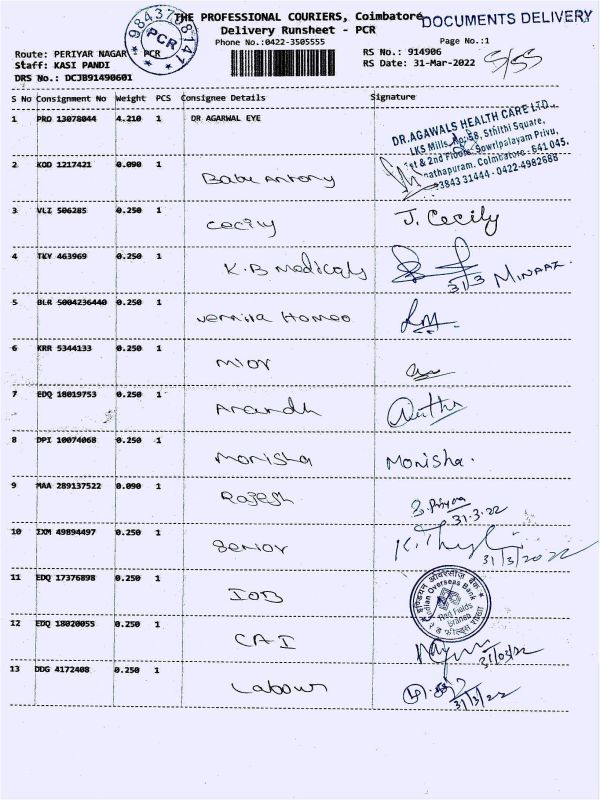 THE PROFESSIONAL COURIERS, Coimbatore
DOCUMENTS DELIVERY
Delivery Runsheet - PCR
Phone No.:0422-3505555
Page No.:1
PCR
Route: PERIYAR NAGAR PCR
RS No.: 914906
Staff: KASI PANDI
RS Date: 31-Mar-2022
DRS No.: DCJB91490601
S No Consignment No Weight PCS Consignee Details Signature
1 PRO 13078044 4.210 1 DR AGARWAL EYE
DR.AGAWALS HEALTH CARE LTD.,
LKS Mills, No:58, Sthithi Square,
1st & 2nd Floors, Sowripalayam Privu,
Coimbatore - 641 045.
31444 - 0422-4982688
2 KOD 1217421 0.090 1 Babu Antony
3 VLZ 506285 0.250 1 Cecily J. Cecily
4 TKY 463969 0.250 1 K.B Medicals 31/3 MINAAZ
5 BLR 5004236440 0.250 1 Homeo
6 KRR 5344133 0.250 1
7 EDQ 18019753 0.250 1 Anandh
8 DPI 10074068 0.250 1 Monisha Monisha.
9 MAA 289137522 0.090 1 Rajesh
31.3.22
10 IXM 49894497 0.250 1 Senior
31/3/2022
11 EDQ 17376898 0.250 1 IOB
Indian Overseas Bank
Red Fields
Branch
12 EDQ 18020055 0.250 1 CAI
31/03/22
13 DDG 4172408 0.250 1 Labour
31/3/22